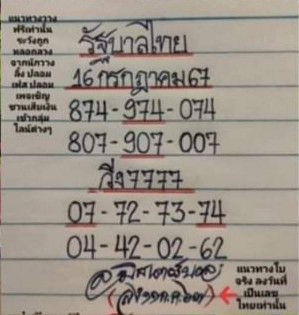 แนวทางวาง
ฟรีเท่านั้น
ระวังถูก
หลอกลวง
จากนักวาง
ลิ้ง ปลอม
เฟส ปลอม
เพจเชิญ
ชวนเสียเงิน
เข้ากลุ่ม
ไลน์ต่างๆ
รัฐบาลไทย
16 กรกฎาคม 67
874-974-074
807-907-007
วิ่ง 7777
07-72-73-74
04-42-02-62
แนวทางใบ
จริง ลงวันที่
เป็นเลข
ไทยเท่านั้น